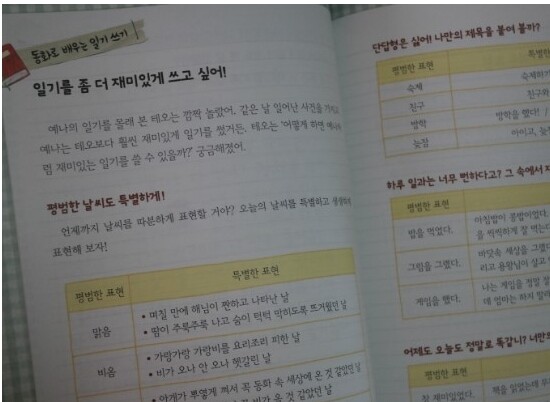 동화로 배우는 일기 쓰기
일기를 좀 더 재미있게 쓰고 싶어!
예나의 일기를 몰래 본 테오는 깜짝 놀랐어. 같은 날 일어난 사건을
예나는 테오보다 훨씬 재미있게 일기를 썼거든. 테오는 '어떻게 하면
럼 재미있는 일기를 쓸 수 있을까?' 궁금해졌어.
평범한 날씨도 특별하게!
언제까지 날씨를 따분하게 표현할 거야? 오늘의 날씨를 특별하고
표현해 보자!
평범한 표현
특별한 표현
맑음
• 며칠 만에 해님이 짠하고 나타난 날
• 땀이 주룩주룩 나고 숨이 턱턱 막히도록 뜨거웠던 날
비옴
• 가랑가랑 가랑비를 요리조리 피한 날
• 비가 오나 안 오나 헷갈린 날
• 안개가 뿌옇게 껴서 꼭 동화 속 세상에 온 것 같았던 날
단답형은 싫어! 나만의 제목을 붙여 볼까?
평범한 표현
숙제
친구
방학
방학을 했다!
늦잠
아이고,
하루 일과는 너무 뻔하다고? 그 속에서
평범한 표현
밥을 먹었다.
아침밥이 꿀밥이었다.
을 씩씩하게 잘 먹는
그림을 그렸다.
바닷속 세상을 그렸다
리고 용왕님이 살고
게임을 했다.
나는 게임을 정말 잘
데 엄마는 하지 말라
어제도 오늘도 정말로 똑같니?
책 재미있었다.
책을 읽었는데